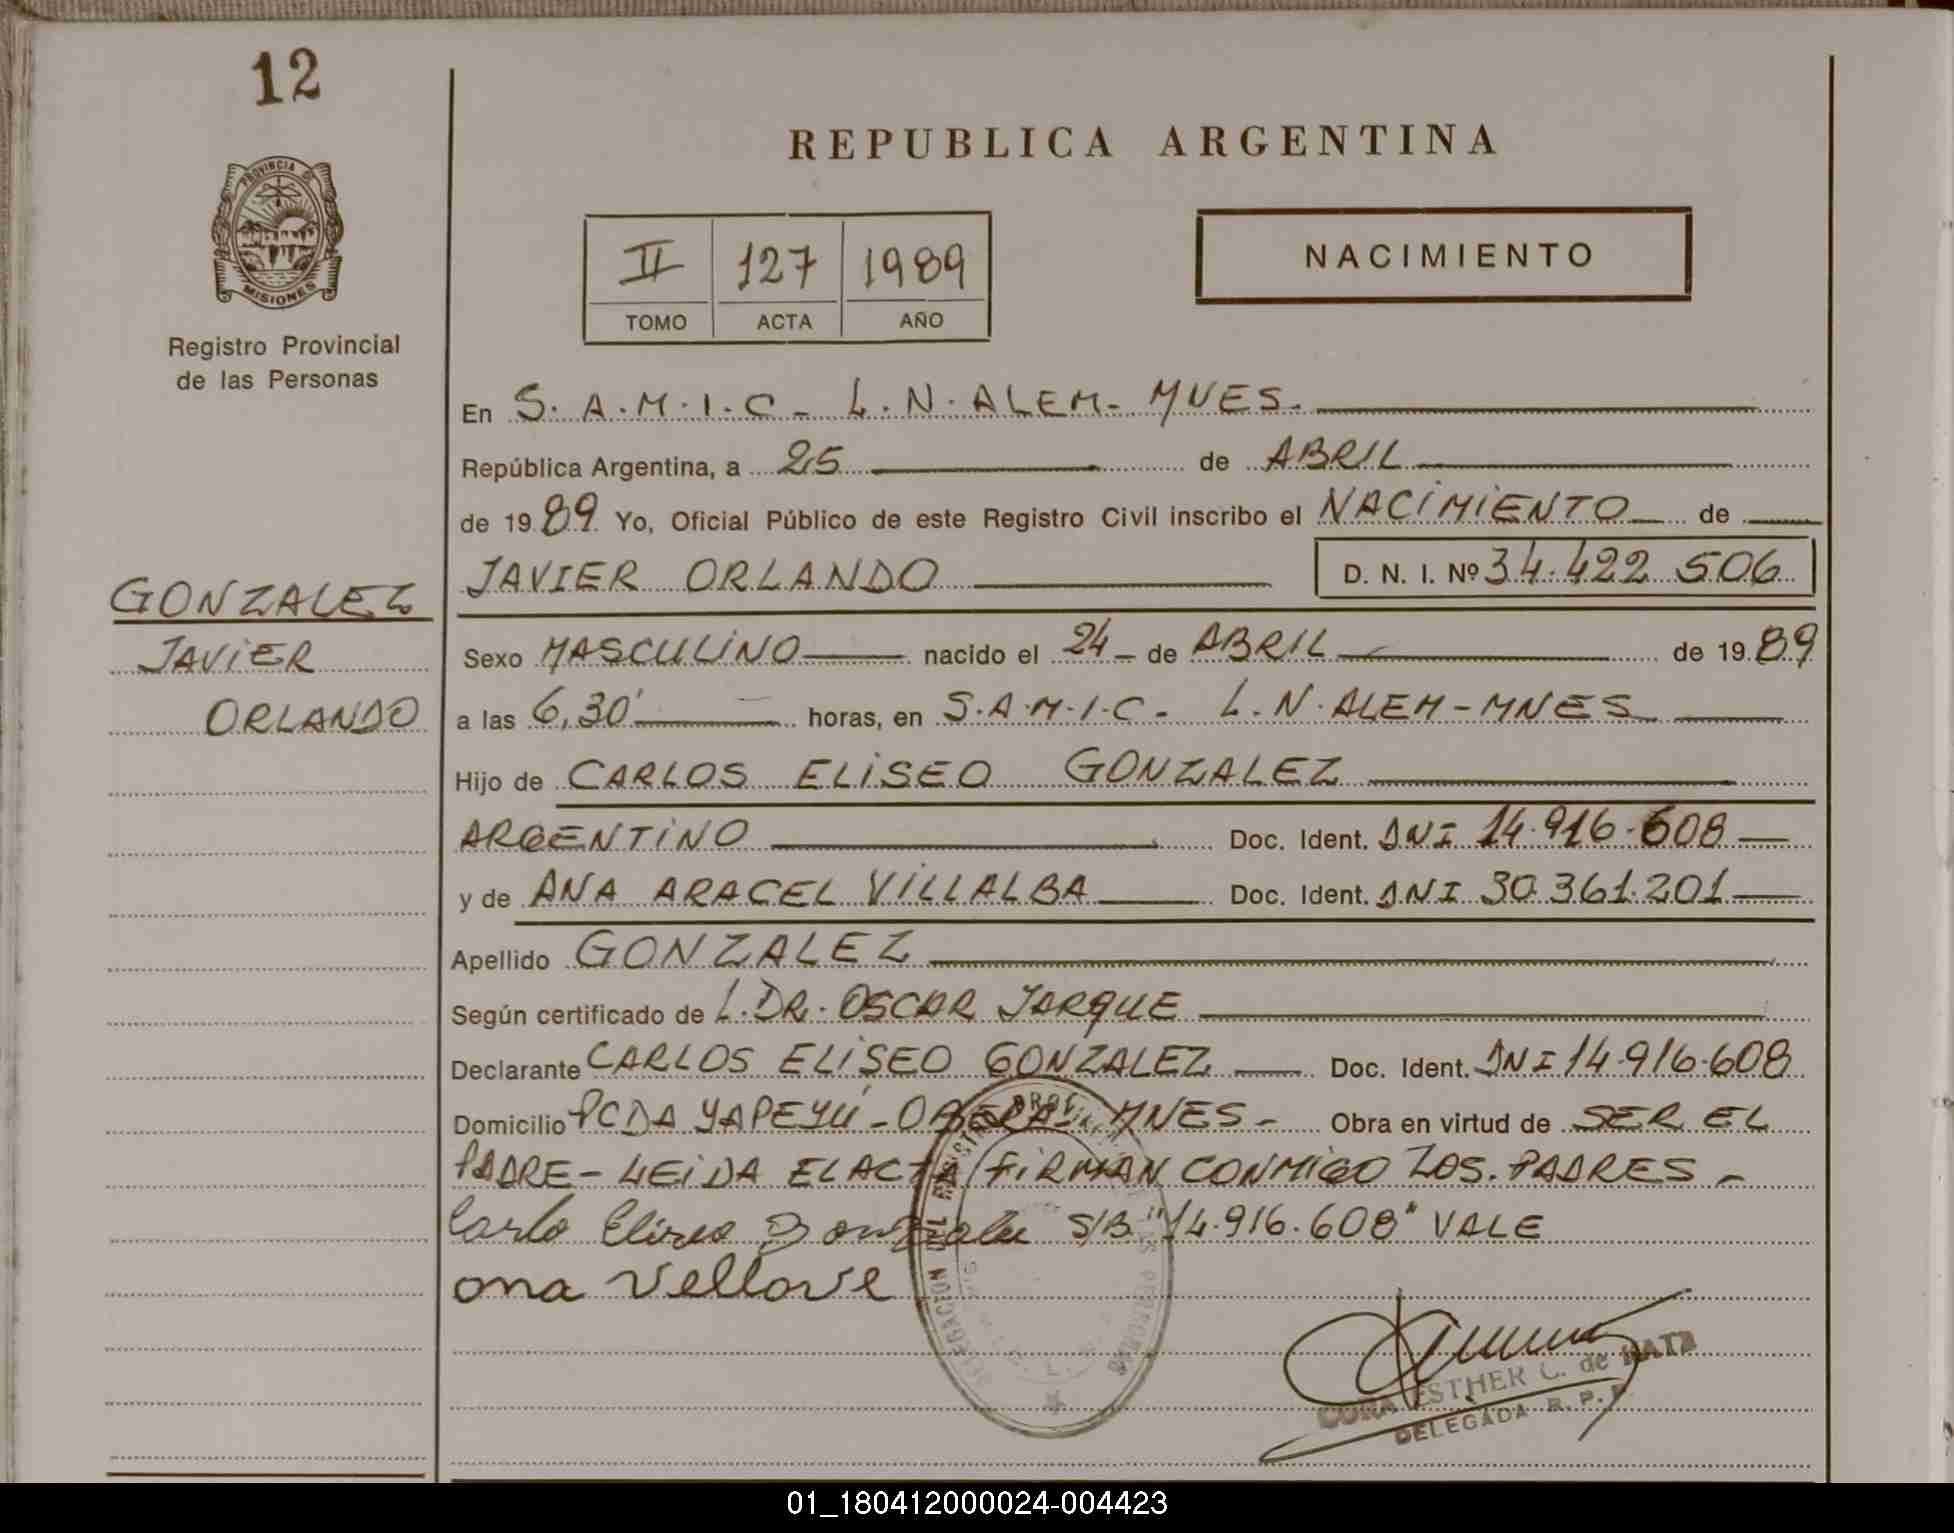 12
REPUBLICA ARGENTINA
PROVINCIA DE
MISIONES
Registro Provincial
de las Personas
II 127 1989
TOMO ACTA AÑO
NACIMIENTO
En S.A.M.I.C- L.N.ALEM- MNES.
República Argentina, a 25 de ABRIL
de 1989 Yo, Oficial Público de este Registro Civil inscribo el NACIMIENTO de
JAVIER ORLANDO D. N. I. Nº 34.422 506
GONZALEZ
JAVIER
ORLANDO
Sexo MASCULINO nacido el 24 de ABRIL de 1989
a las 6,30' horas, en S.A.M.I.C. L.N.ALEM-MNES
Hijo de CARLOS ELISEO GONZALEZ
ARGENTINO Doc. Ident. DNI 14.916.608
y de ANA ARACEL VILLALBA Doc. Ident. DNI 30.361.201
Apellido GONZALEZ
Según certificado de L.DR. OSCAR JARQUE
Declarante CARLOS ELISEO GONZALEZ Doc. Ident. DNI 14.916.608
Domicilio PCDA YAPEYÚ - OBERA - MNES - Obra en virtud de SER EL
PADRE - LEIDA EL ACTA FIRMAN CONMIGO LOS. PADRES -
Carlo Eliseo Gonzalez S/B "14.916.608" VALE
ona Vellove
DELEGACION DEL REGISTRO PROV. DE LAS PERSONAS
CORA ESTHER C. de RATZ
DELEGADA R. P. P.
01_180412000024-004423